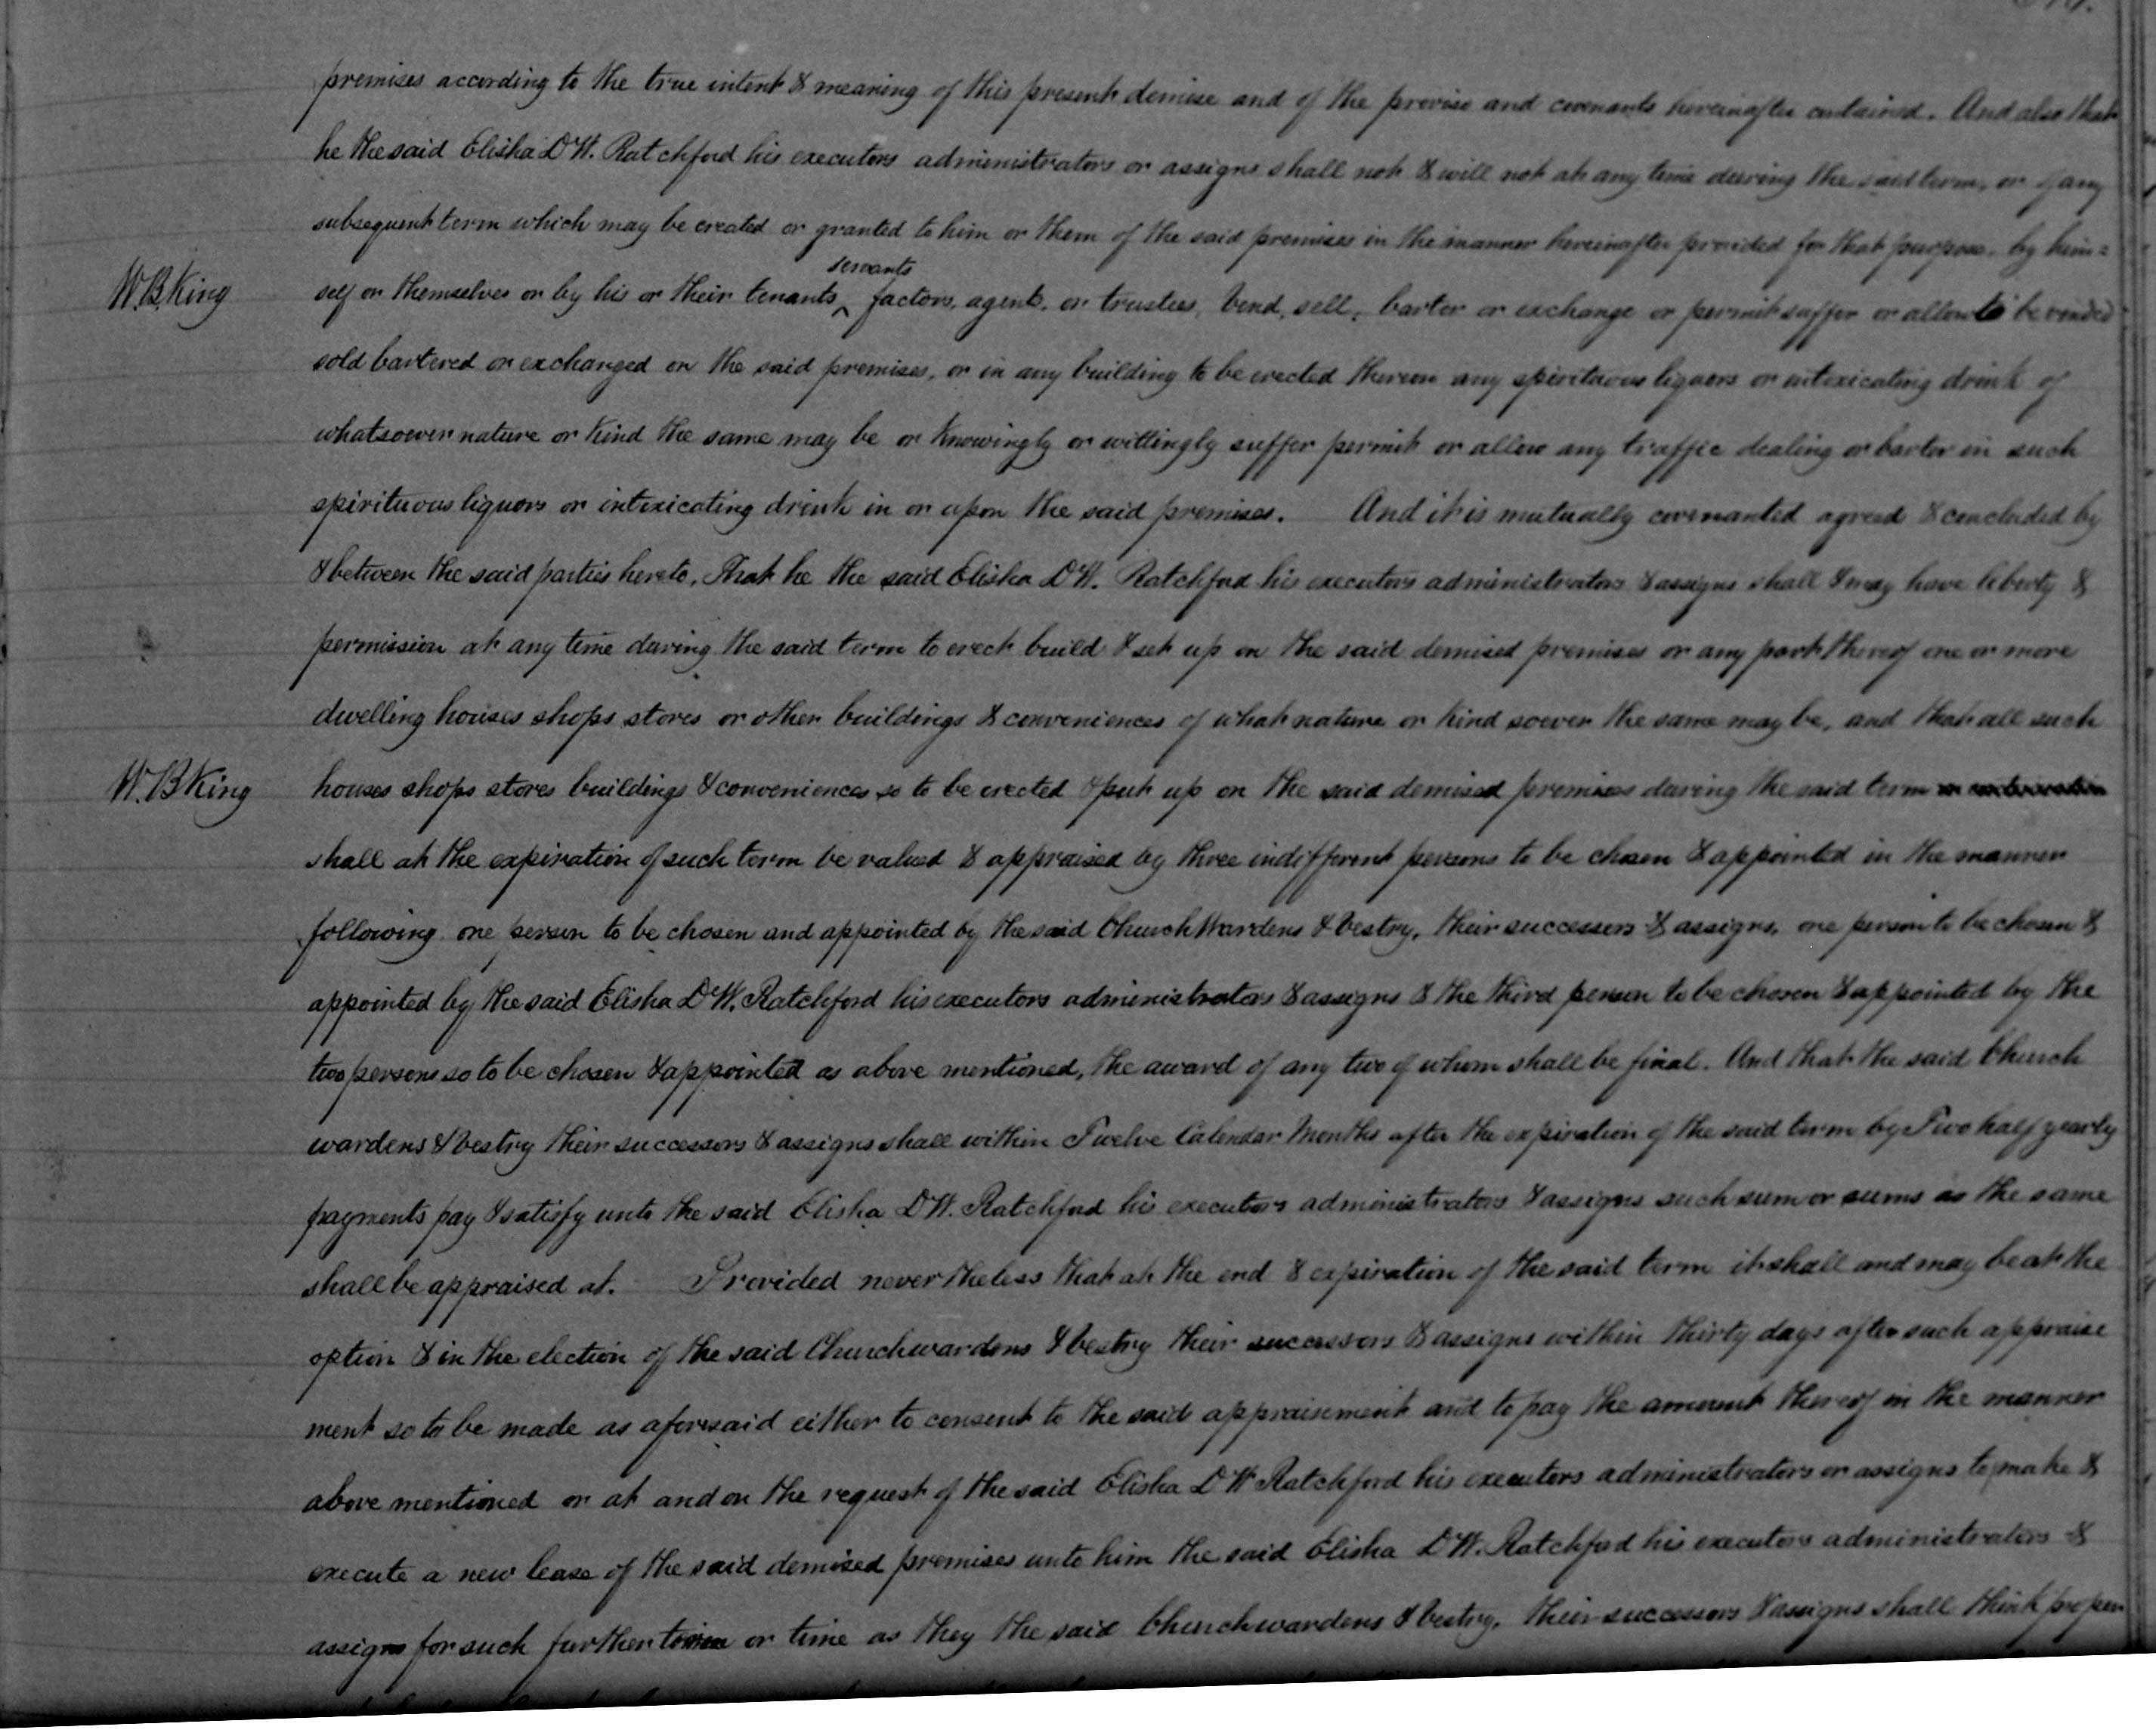 premises according to the true intent & meaning of this present demise and of the proviso and covenants hereinafter contained. And also that
he the said Elisha D W. Ratchford his executors administrators or assigns shall not & will not at any time during the said term, or of any
subsequent term which may be created or granted to him or them of the said premises in the manner hereinafter provided for that purpose, by him=
servants
W. B. King self or themselves or by his or their tenants ^ factors, agents, or trustees, vend, sell, barter or exchange or permit suffer or allow to be vended
sold bartered or exchanged on the said premises, or in any building to be erected thereon any spirituous liquors or intoxicating drink of
whatsoever nature or kind the same may be or knowingly or wittingly suffer permit or allow any traffic dealing or barter in such
spirituous liquors or intoxicating drink in or upon the said premises. And it is mutually covenanted agreed & concluded by
& between the said parties hereto, That he the said Elisha D W. Ratchford his executors administrators & assigns shall & may have liberty &
permission at any time during the said term to erect build & set up on the said demised premises or any part thereof one or more
dwelling houses shops stores or other buildings & conveniences of what nature or kind soever the same may be, and that all such
W. B King houses shops stores buildings & conveniences so to be erected & put up on the said demised premises during the said term
shall at the expiration of such term be valued & appraised by three indifferent persons to be chosen & appointed in the manner
following one person to be chosen and appointed by the said Church Wardens & Vestry, their successors & assigns, one person to be chosen &
appointed by the said Elisha D W. Ratchford his executors administrators & assigns & the third person to be chosen & appointed by the
two persons so to be chosen & appointed as above mentioned, the award of any two of whom shall be final. And that the said Church
wardens & Vestry their successors & assigns shall within Twelve Calendar Months after the expiration of the said term by Two half yearly
payments pay & satisfy unto the said Elisha D W. Ratchford his executors administrators & assigns such sum or sums as the same
shall be appraised at. Provided never theless that at the end & expiration of the said term it shall and may be at the
option & in the election of the said Churchwardens & Vestry their successors & assigns within thirty days after such appraise
ment so to be made as aforesaid either to consent to the said appraisement and to pay the amount thereof in the manner
above mentioned or at and on the request of the said Elisha D W Ratchford his executors administrators or assigns to make &
execute a new lease of the said demised premises unto him the said Elisha D W. Ratchford his executors administrators &
assigns for such further term or time as they the said Churchwardens & Vestry, their successors & assigns shall think proper